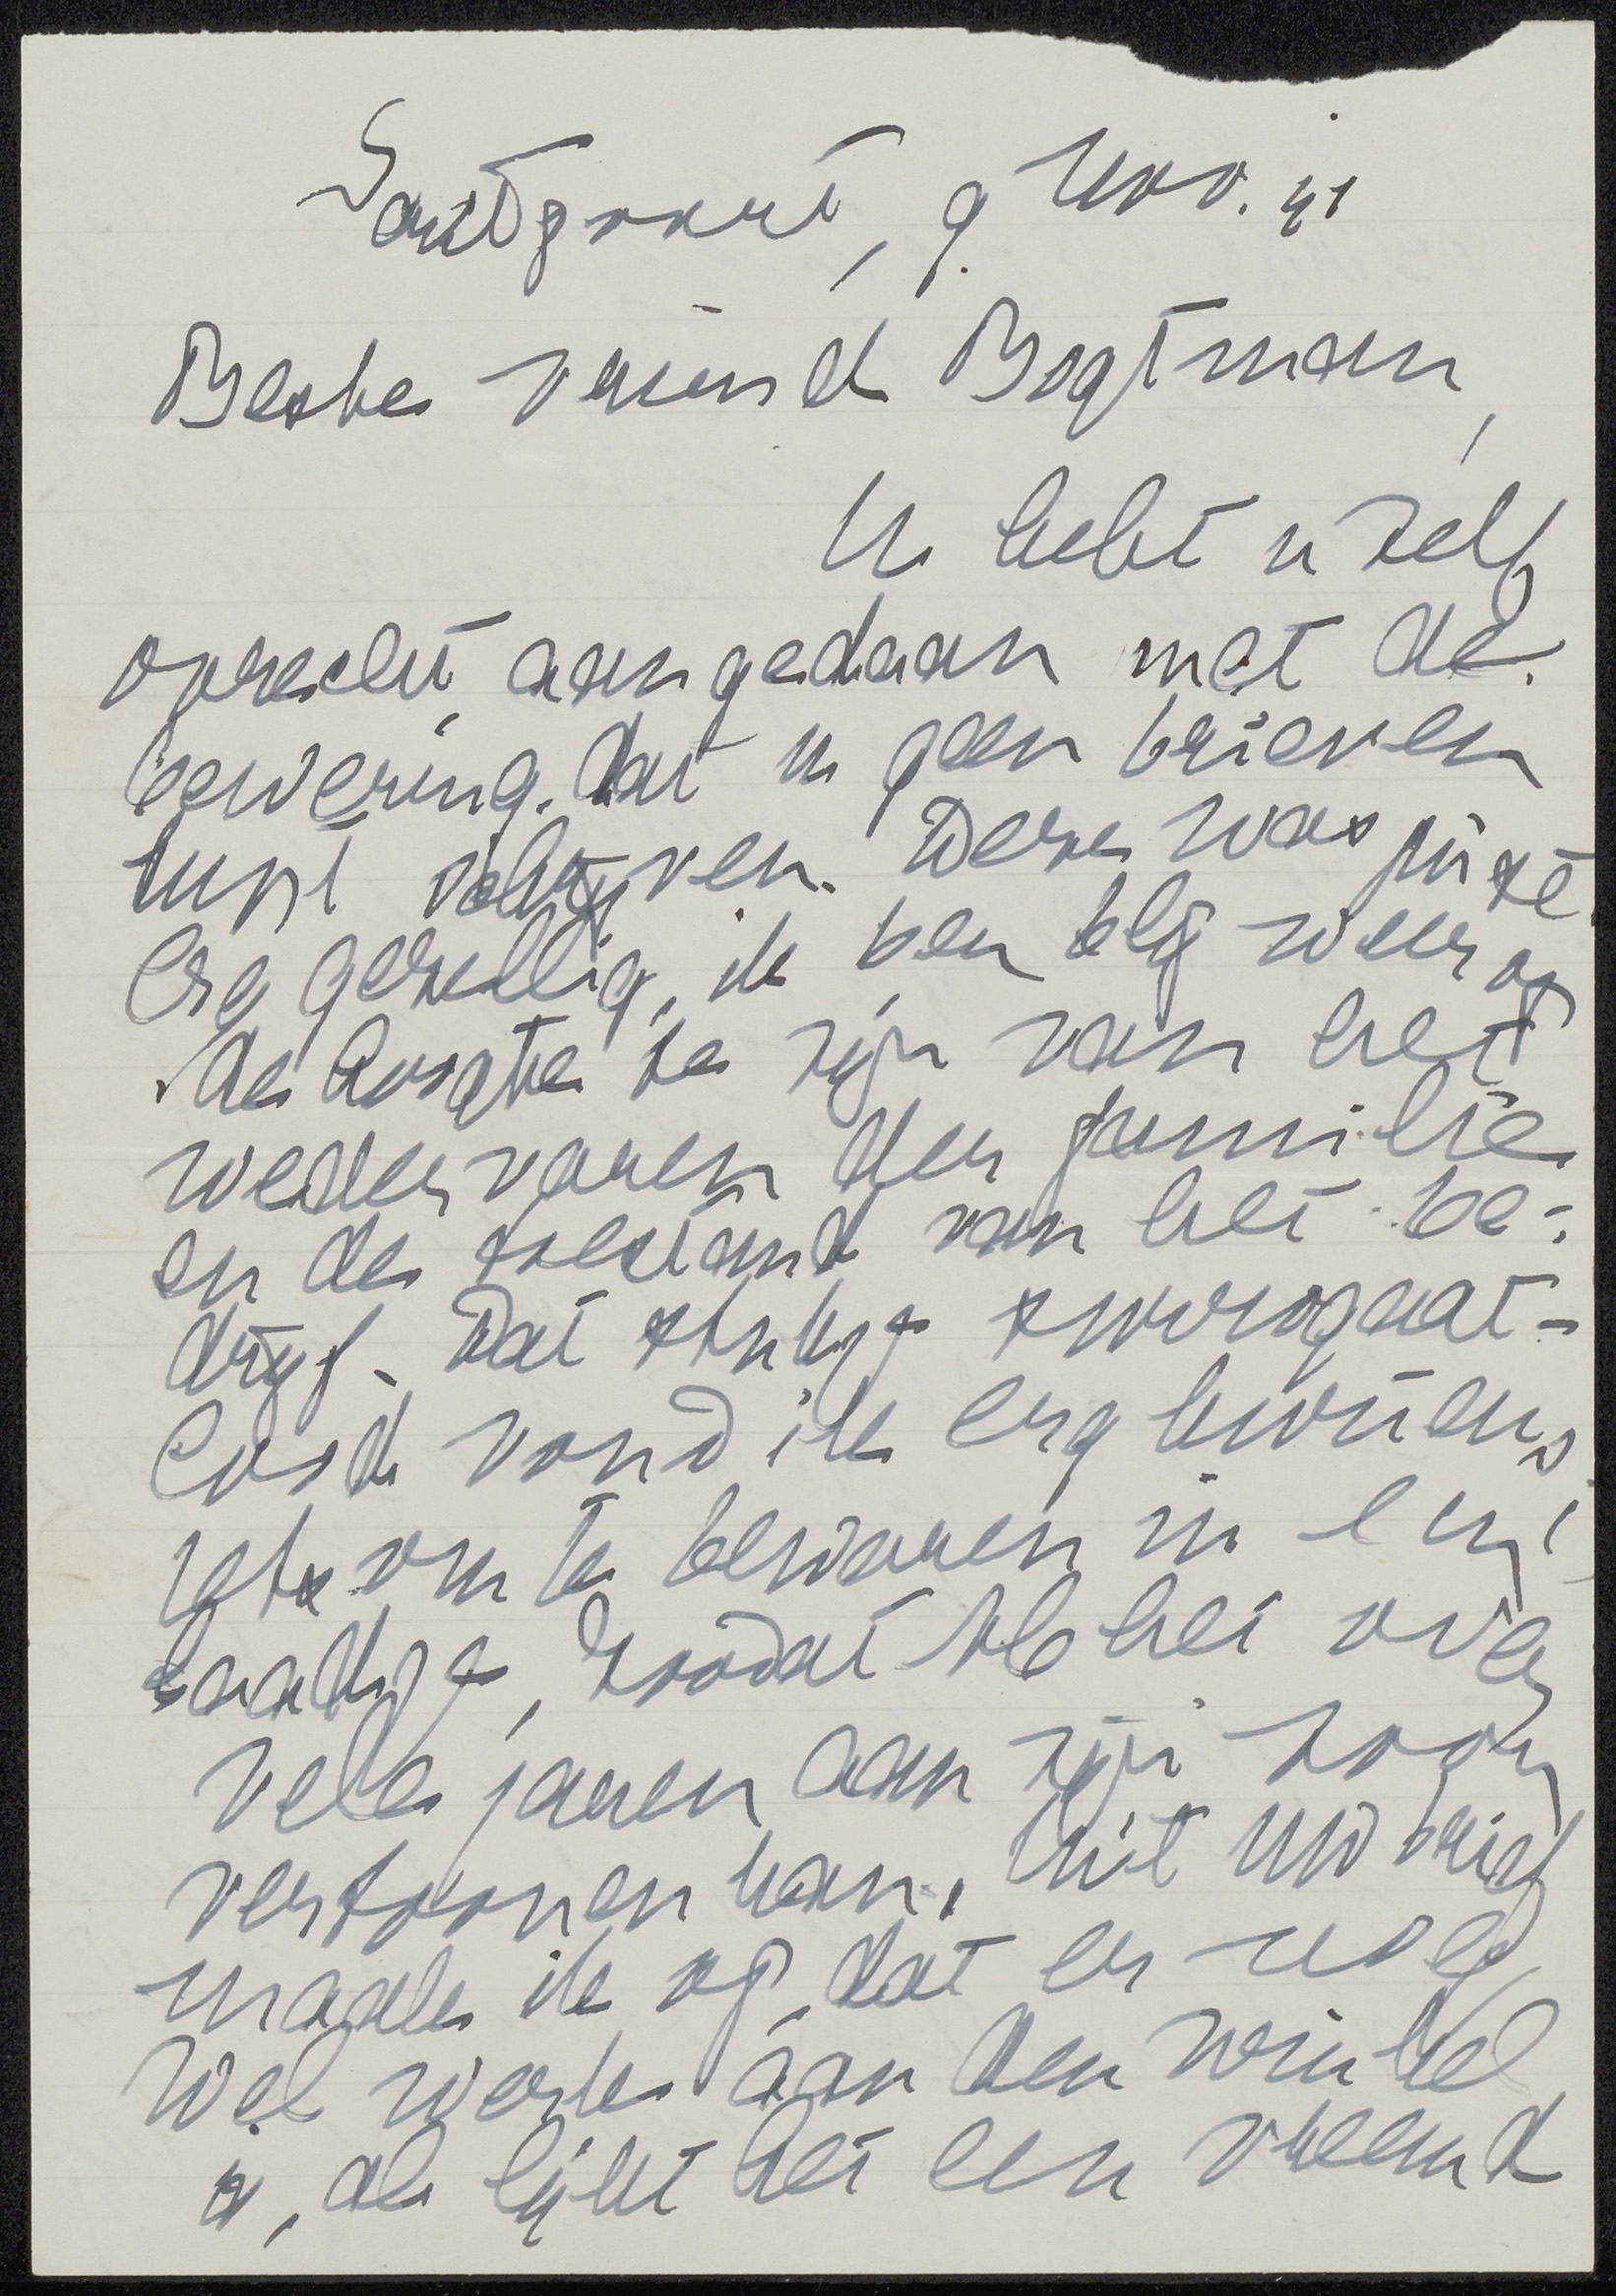 Santpoort, 9 Nov. 41
Beste vriend Bogtman,
U hebt u zelf
onrecht aangedaan met de
bewering, dat u geen brieven
kunt schrijven. Deze was juist
erg gezellig, ik ben blij weer op
de hoogte te zijn van het
wedervaren der familie
en de toestand van het be-
drijf. Dat stukje surrogaat-
lood vond ik erg kurieus,
iets om te bewaren in een
laadje, zoodat Ab het over
vele jaren aan zijn zoon
vertoonen kan. Uit uw brief
maak ik op, dat er nog
wel werk aan den winkel
is, al lijkt het een vreemd